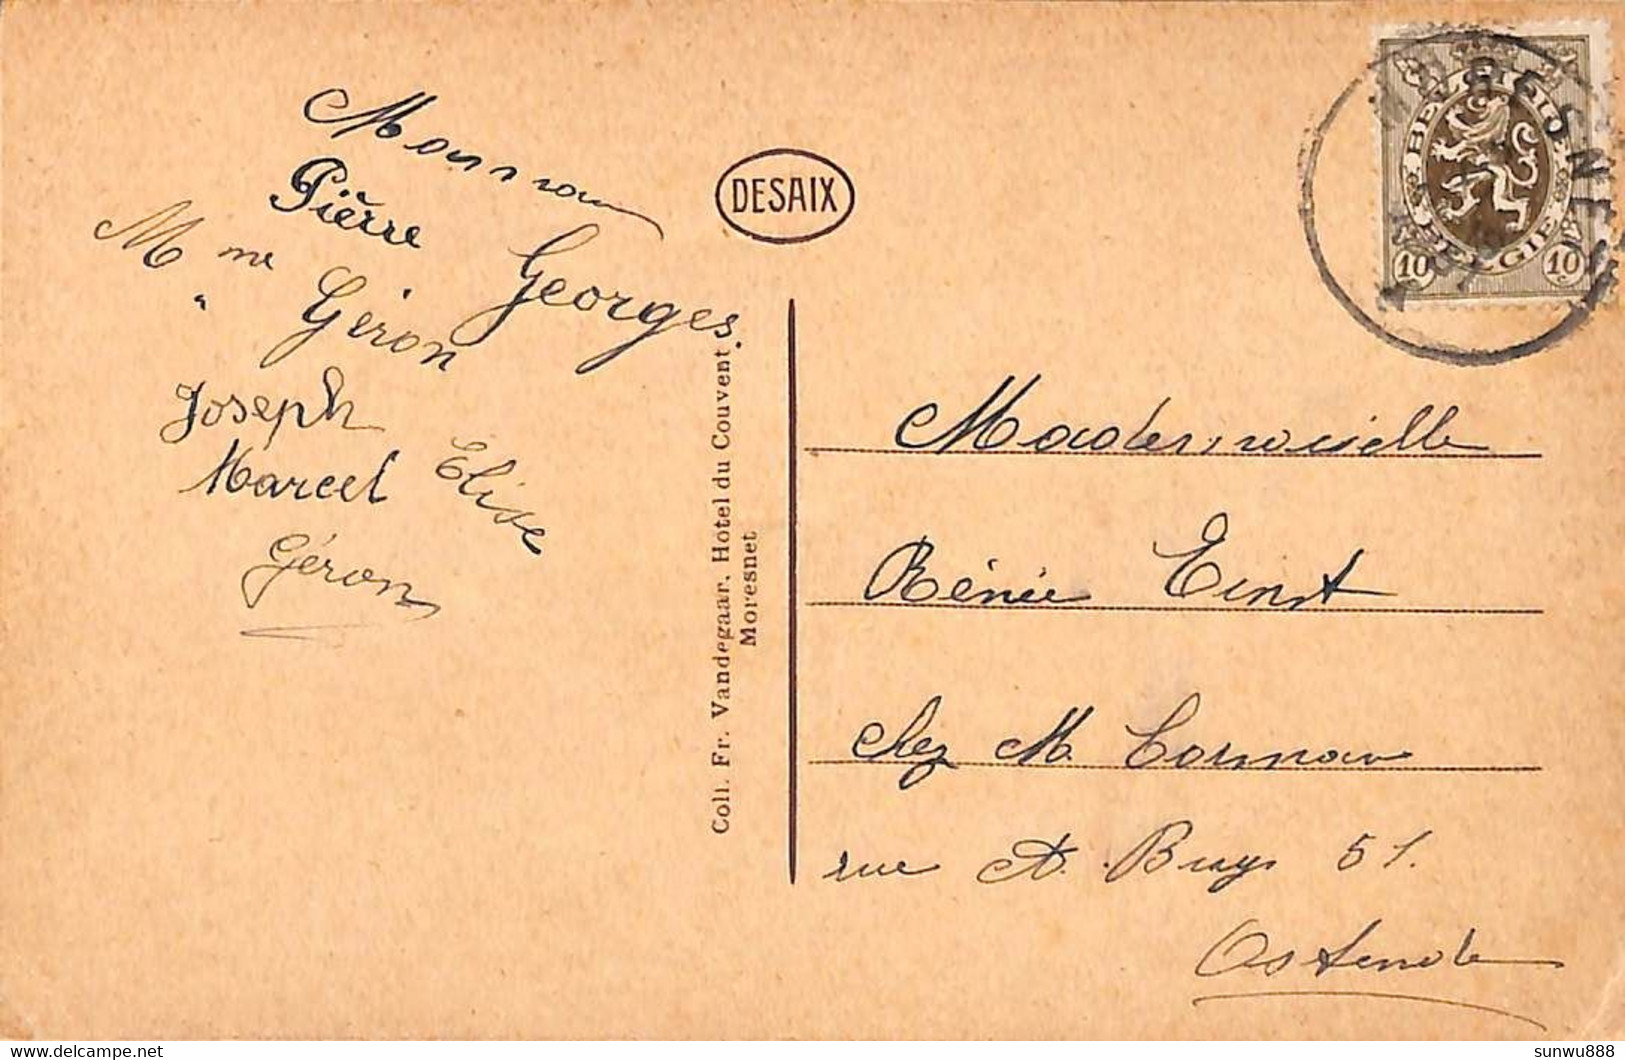 Maman
Pierre
Georges.
Mme
" Géron
Joseph
Marcel Elise
Géron
DESAIX
Coll. Fr. Vandegaar, Hôtel du Couvent
Moresnet
MORESNET
BELGIQUE
BELGIE
10 10
Mademoiselle
Rénée Ernst
Chez M.
rue A. Buys 51.
Ostende
sunwu888